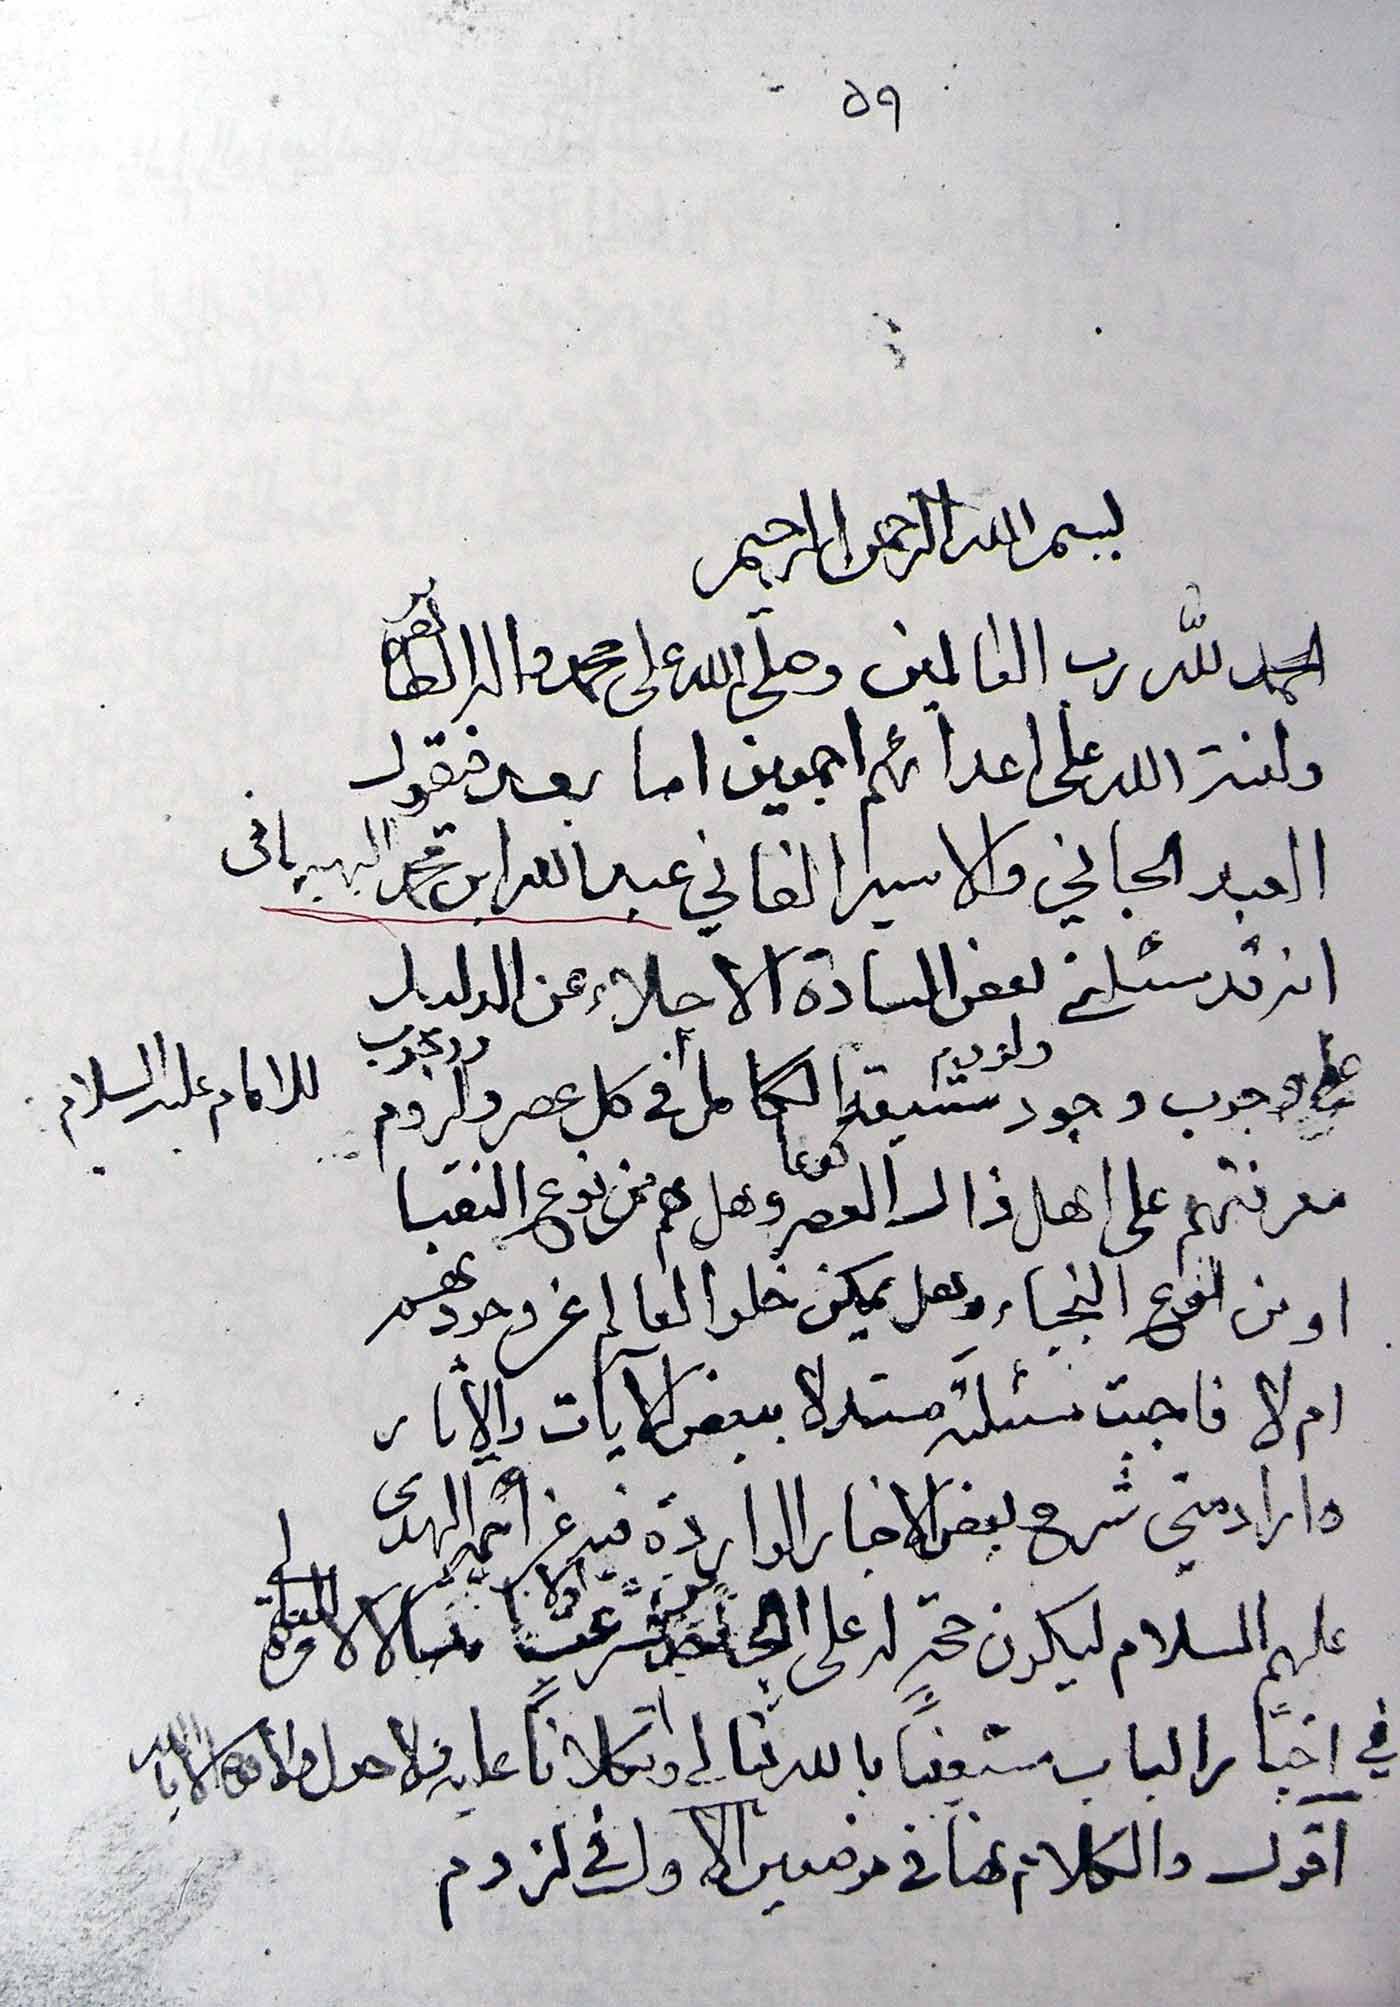 ٥٩
بسم الله الرحمن الرحيم
الحمد لله رب العالمين وصلى الله على محمد واله الطاهرين
ولعنة الله على اعدائهم اجمعين اما بعد فيقول
العبد الجاني والاسير الفاني عبد الله ابن محمد
انه قد سئلني بعض السادة الاجلاء عن الدليل
على وجوب وجود الكامل في كل عصر ولزوم ووجوب للامام عليه السلام
معرفتهم على اهل ذالك العصر وهل هم من نوع النقبا
او من نوع النجباء وهل يمكن خلو العالم عن وجودهم
ام لا فاجبت مسئلته مستدلا ببعض الايات والاثار
واراد مني شرح بعض الاخبار الواردة فيه عن ائمة الهدى
عليهم السلام ليكون حجة له على
في اخبار الباب مستعينا بالله تعالى واتكلانا عليه ولا حول ولا قوة الا بالله
اقول والكلام هنا في موضعين الاول في لزوم